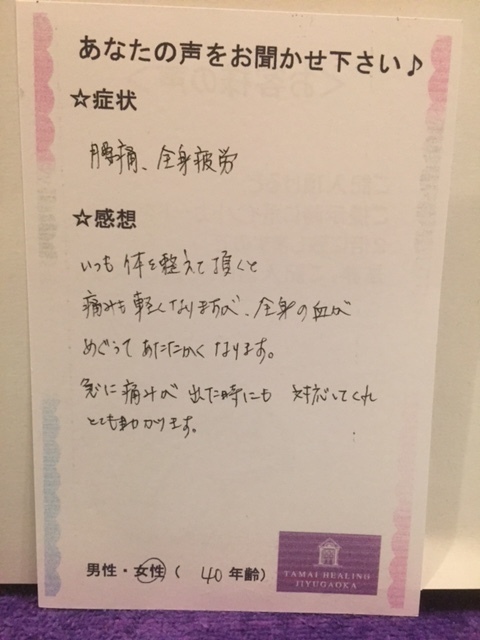 あなたの声をお聞かせ下さい♪
☆症状
腰痛、全身疲労
☆感想
いつも体を整えて頂くと
痛みも軽くなりますが、全身の血が
めぐってあたたかくなります。
急に痛みが出た時にも対応してくれ
とても助かります。
男性・女性( 40 年齢)
TAMAI HEALING
JIYUGAOKA